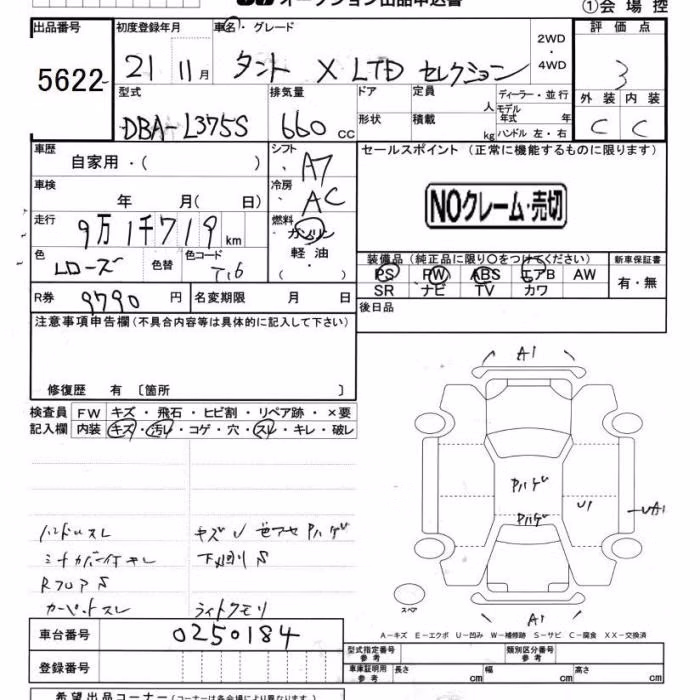 オークション出品申込書
①会場控
出品番号 初度登録年月 車名・グレード 2WD・4WD 評価点
5622 21 11月 タント X LTD セレクション 3
型式 排気量 ドア 定員 人 ディーラー・並行 外装 内装
DBA-L375S 660cc 形状 積載 kg モデル年式 年 ハンドル 左・右 C C
車歴 自家用・( ) シフト A7 セールスポイント (正常に機能するものに限ります)
車検 年 月( 日) 冷房 AC
NOクレーム・売切
走行 9万1千719km 燃料 ガソリン
軽油・
( )
色 Lローズ 色替 色コード T16
装備品 (純正品に限り○をつけてください) 新車保証書
PS PW ABS エアB AW 有・無
SR ナビ TV カワ
R券 9790円 名変期限 月 日 後日品
注意事項申告欄(不具合内容等は具体的に記入して下さい)
修復歴 有 〔箇所 〕
検査員 FW キズ・飛石・ヒビ割・リペア跡・×要
記入欄 内装 キズ・汚レ・コゲ・穴・スレ・キレ・破レ
A1
Pハゲ
Pハゲ
U1
UA1
A1
スペア
ハンドルスレ キズU 色アセPハゲ
下廻りS
RフロアS
カーペットスレ ライトクモリ
A-キズ E-エクボ U-凹み W-補修跡 S-サビ C-腐食 XX-交換済
車台番号 0250184
型式指定番号 参考 類別区分番号 参考
登録番号 車庫証明用 参考 長さ cm 幅 cm 高さ cm
希望出品コーナー(コーナーは各会場により異なります)